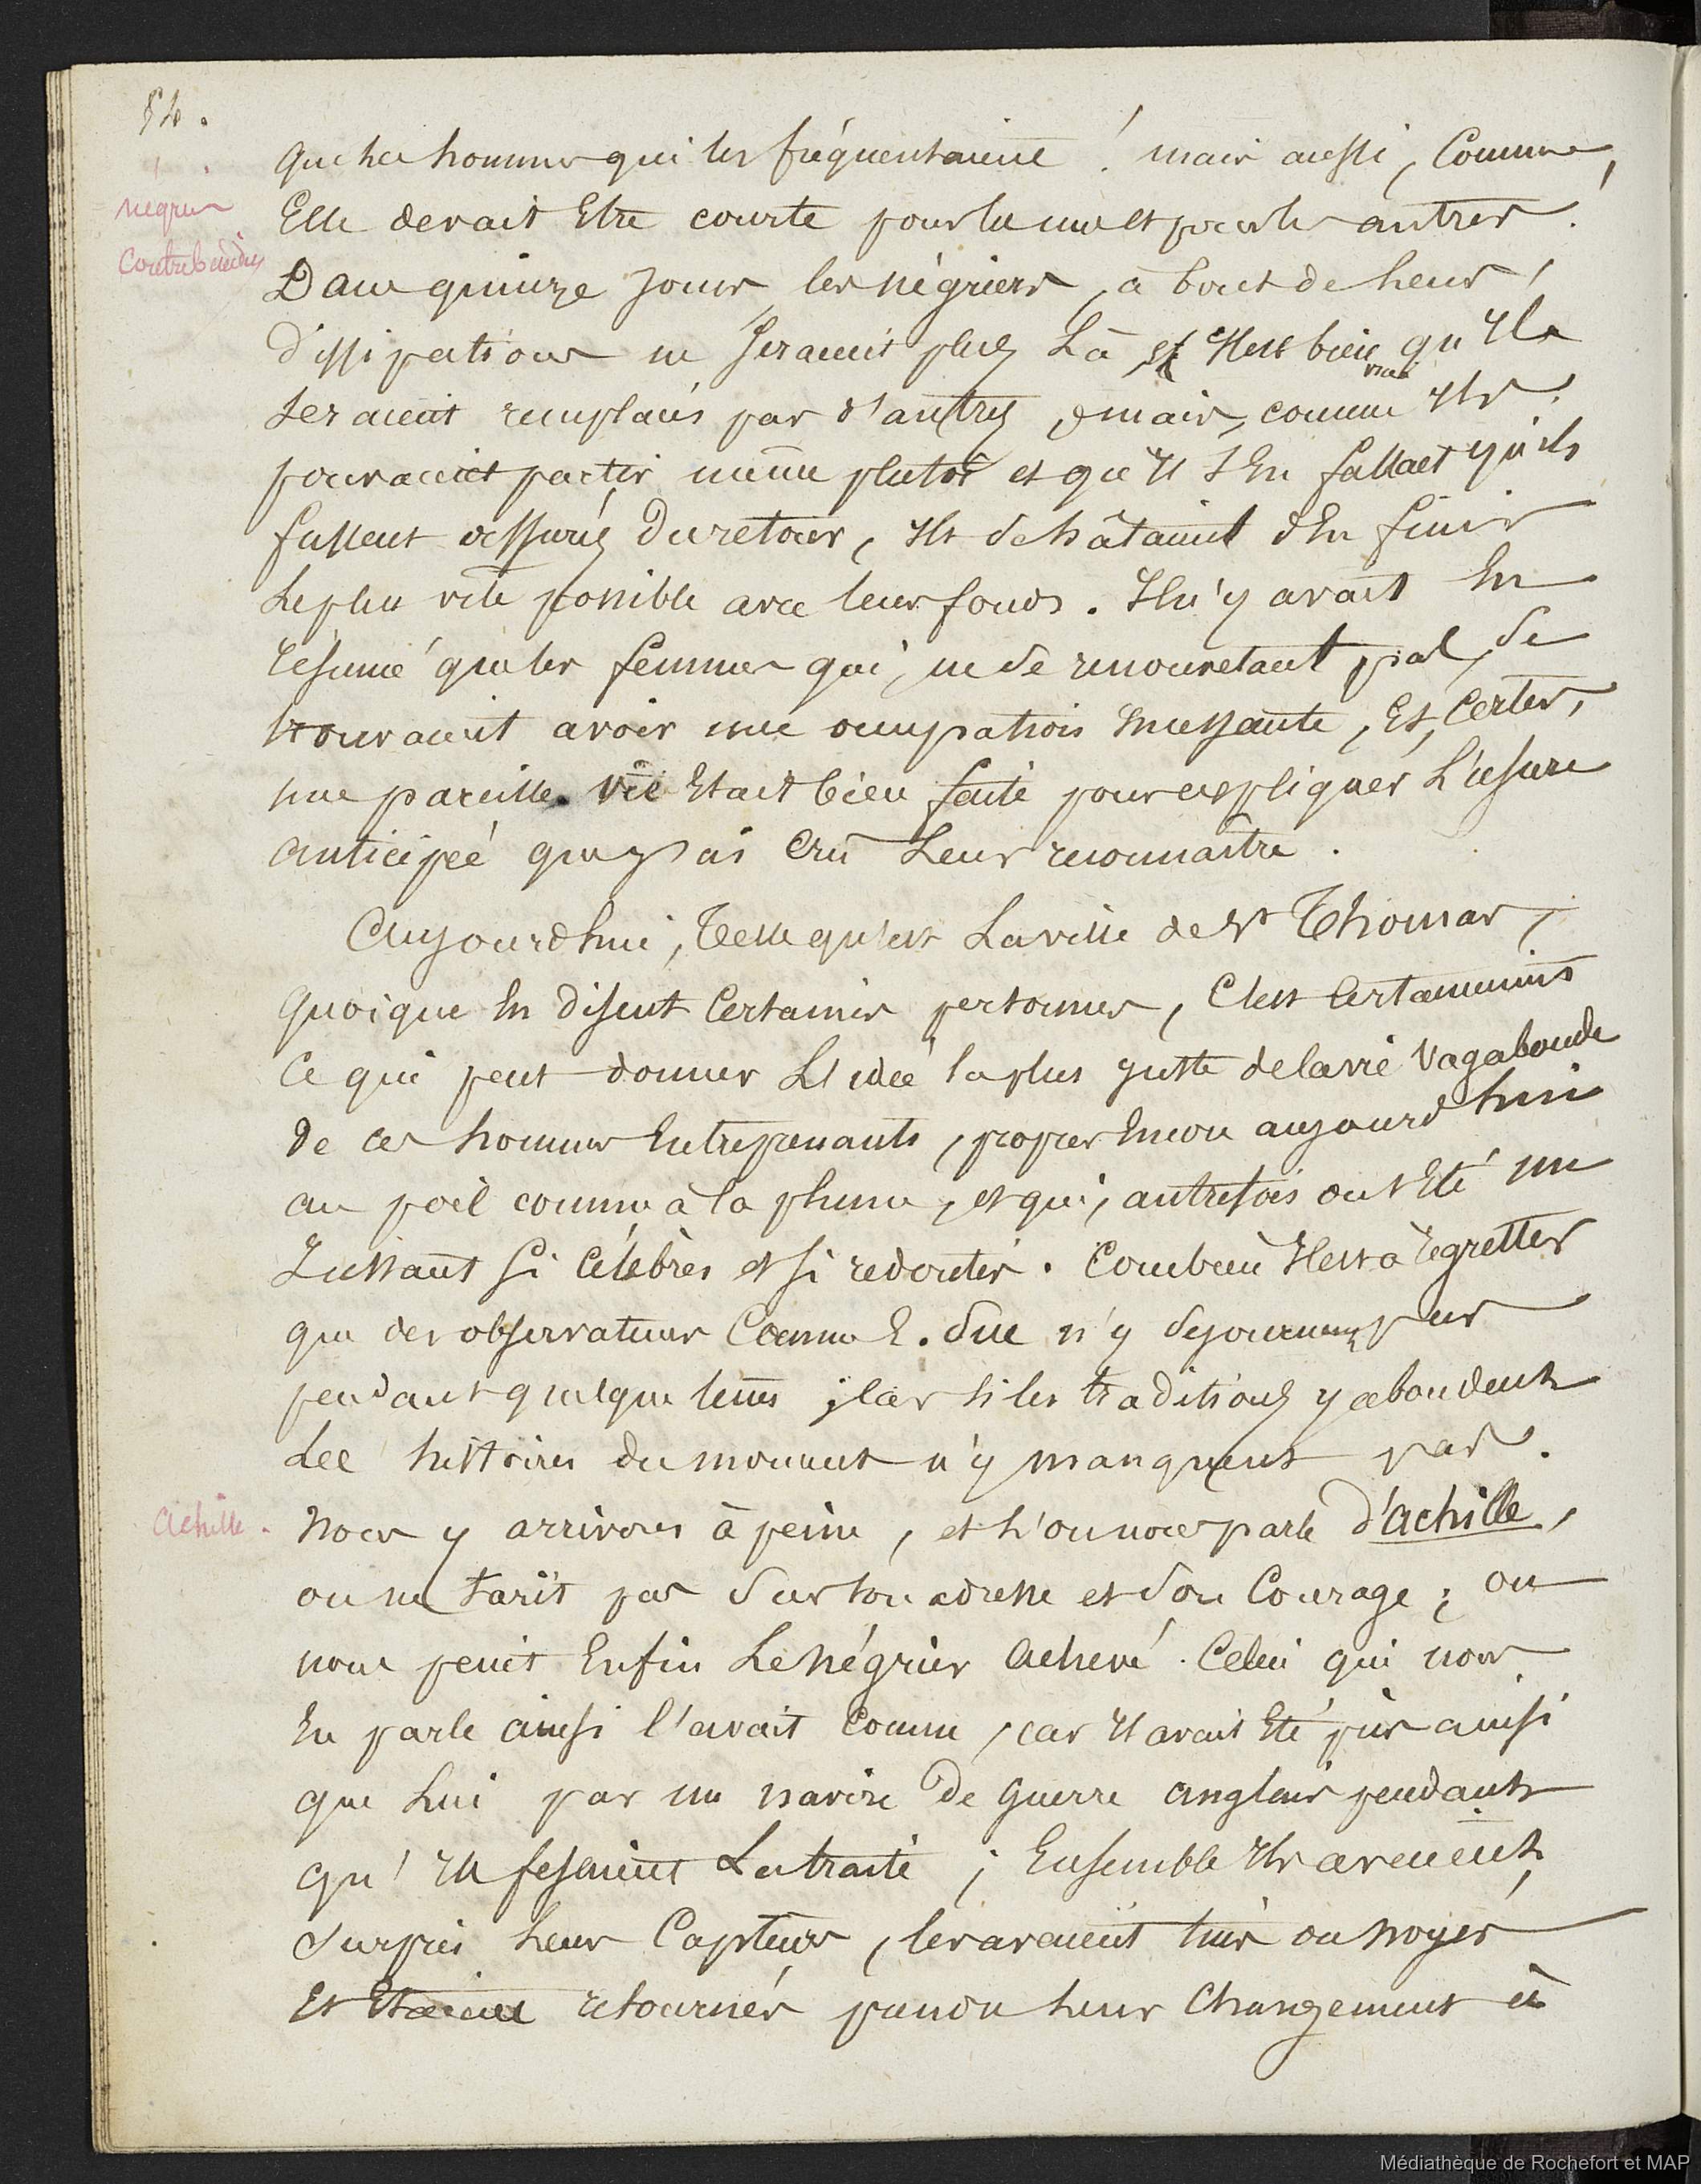 54.
que les hommes qui les fréquentaient ! mais aussi, Comme,
négriers
Elle devait Etre courte pour les uns et pour les autres !
Contrebandiers
Dans quinze jours les négriers, à bout de leurs
dissipations ne seraient plus Là, Il est bien vrai qu'Ils
seraient remplacés par d'autres, mais, comme Ils
pouvaient partir même plutôt et qu'Il s'En fallait qu'ils
fussent assurés du retour, Ils se hâtaient d'En finir
Le plus vite possible avec leurs fonds. Il n'y avait En
résumé que les femmes qui, ne se renouvelant pas, se
trouvaient avoir une occupation incessante, Et, Certes,
une pareille vie Etait bien faite pour expliquer L'usure
anticipée que j'ai Crû Leur reconnaître.
Aujourd'hui, Telle qu'est La ville de St Thomas,
quoique En disent Certaines personnes, C'est Certainement
Ce qui peut donner L'idée la plus juste de la vie Vagabonde
de ces hommes Entreprenants, propres Encore aujourd'hui
au poil comme à la plume, et qui, autrefois ont Eté un
Instant si Célèbres et si redoutés. Combien Il est à regretter
que des observateurs Comme E. Sue n'y séjournent pas
pendant quelque tems ; Car si les traditions y abondent
Les histoires du moment n'y manquent pas.
Achille.
Nous y arrivons à peine, et l'on nous parle d'Achille,
on ne tarit pas sur son adresse et son Courage ; on
nous peint Enfin Le Négrier Achevé. Celui qui nous
En parle ainsi l'avait Connu, car Il avait Eté pris ainsi
que Lui par un navire de guerre anglais pendant
qu'Ils fesaient La traite ; Ensemble Ils avaient,
surpris Leurs Capteurs, les avaient tués ou noyés
Et Etaient retournés prendre leur Chargement à
Médiathèque de Rochefort et MAP